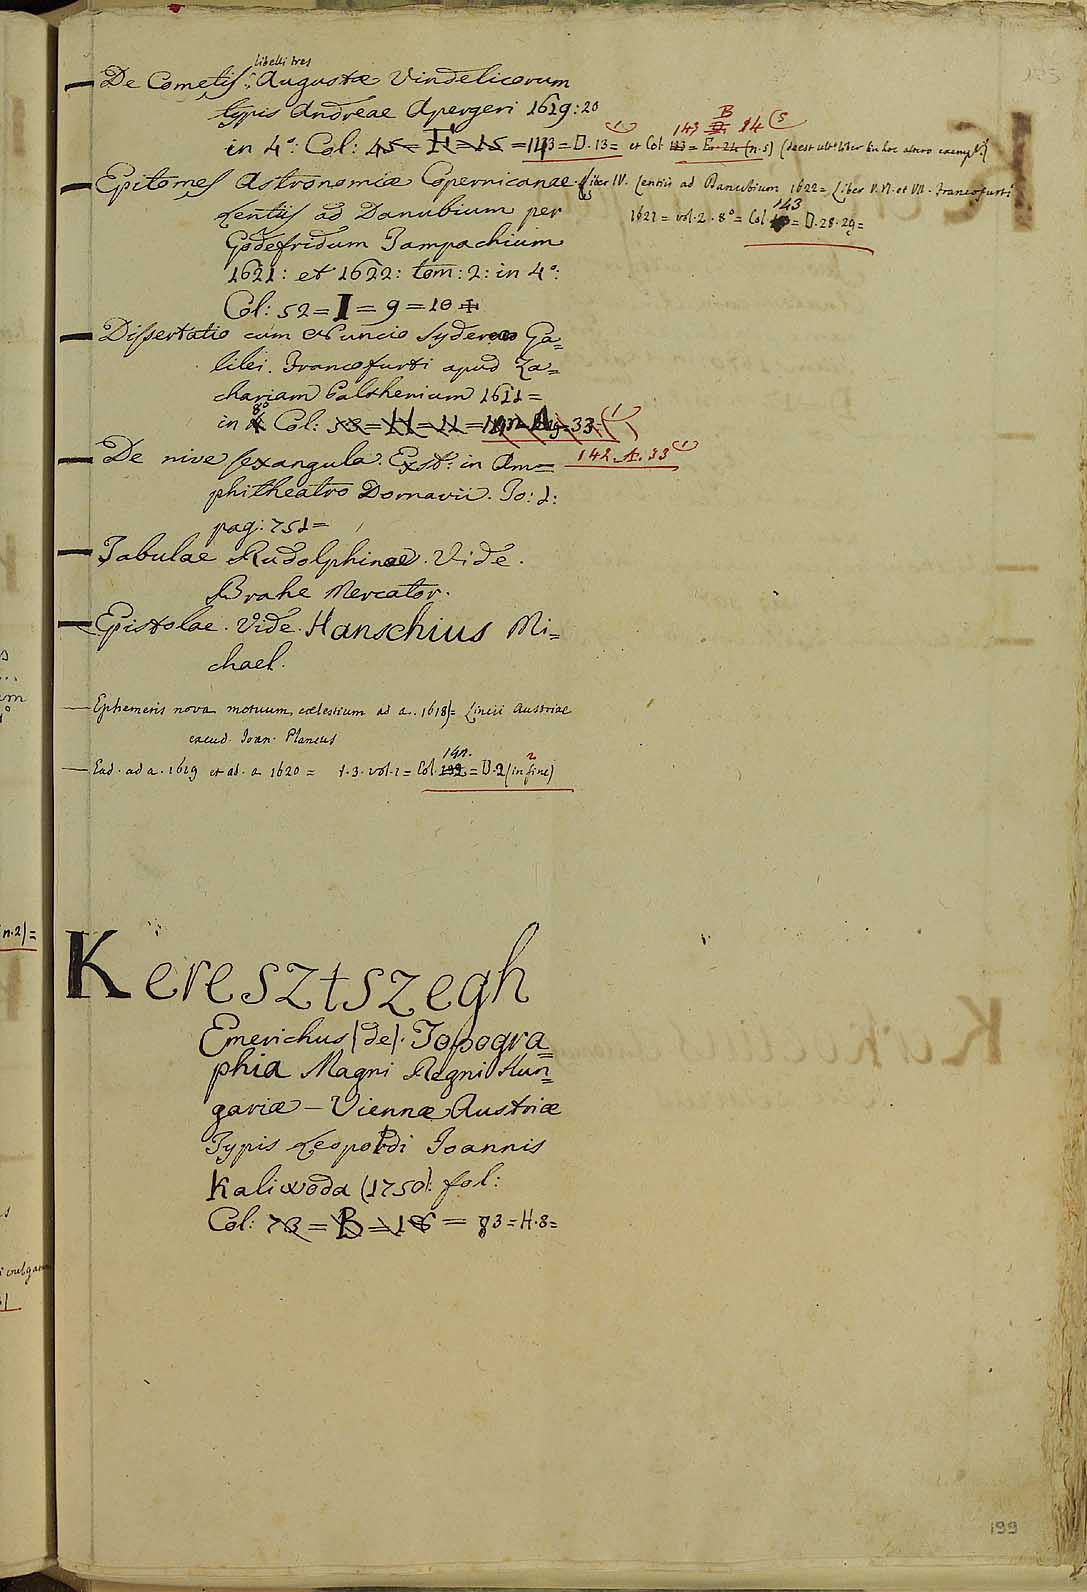 libelli tres
De Cometis. Augustæ Vindelicorum
typis Andreae Apergeri 1619:20
in 4°: Col: 45=F=15=143=D.13= et Col
143 B 14(5
(deest ult° liber in hoc altero exempl.)
Epitomes Astronomiæ Copernicanae.
Liber IV. Lentiis ad Danubium 1622= Liber V. VI. et VII. Francofurti
1621= vol. 2. 8°= Col 143 = D.28.29=
Lentiis ad Danubium per
Godefridum Tampachium
1621: et 1622: tom: 2: in 4°:
Col: 52=I=9=10
Dissertatio cum Nuncio Sydereo Ga=
lilei. Francofurti apud Za=
chariam Palthenium 1611=
in 8° Col: 53=H=11=
142.A.33
De nive sexangula. Exst: in Am=
phitheatro Dornavii. To: 1:
pag: 751=
Tabulae Rudolphinae. Vide.
Brahe Mercator.
Epistolae. Vide. Hanschius Mi=
chael.
Ephemeris nova motuum cælestium ad a. 1618)= Lincii Austriae
excud. Joan. Plancus
Ead. ad a. 1619 et ad. a 1620 = t.3. vol.1= Col. = D.2 (in fine)
Keresztszegh
Emerichus (de). Topogra=
phia Magni Regni Hun=
gariæ – Viennæ Austriæ
Typis Leopoldi Joannis
Kaliwoda (1750): fol:
Col: 73=B=16= 83=H.8=
n.2)=
199